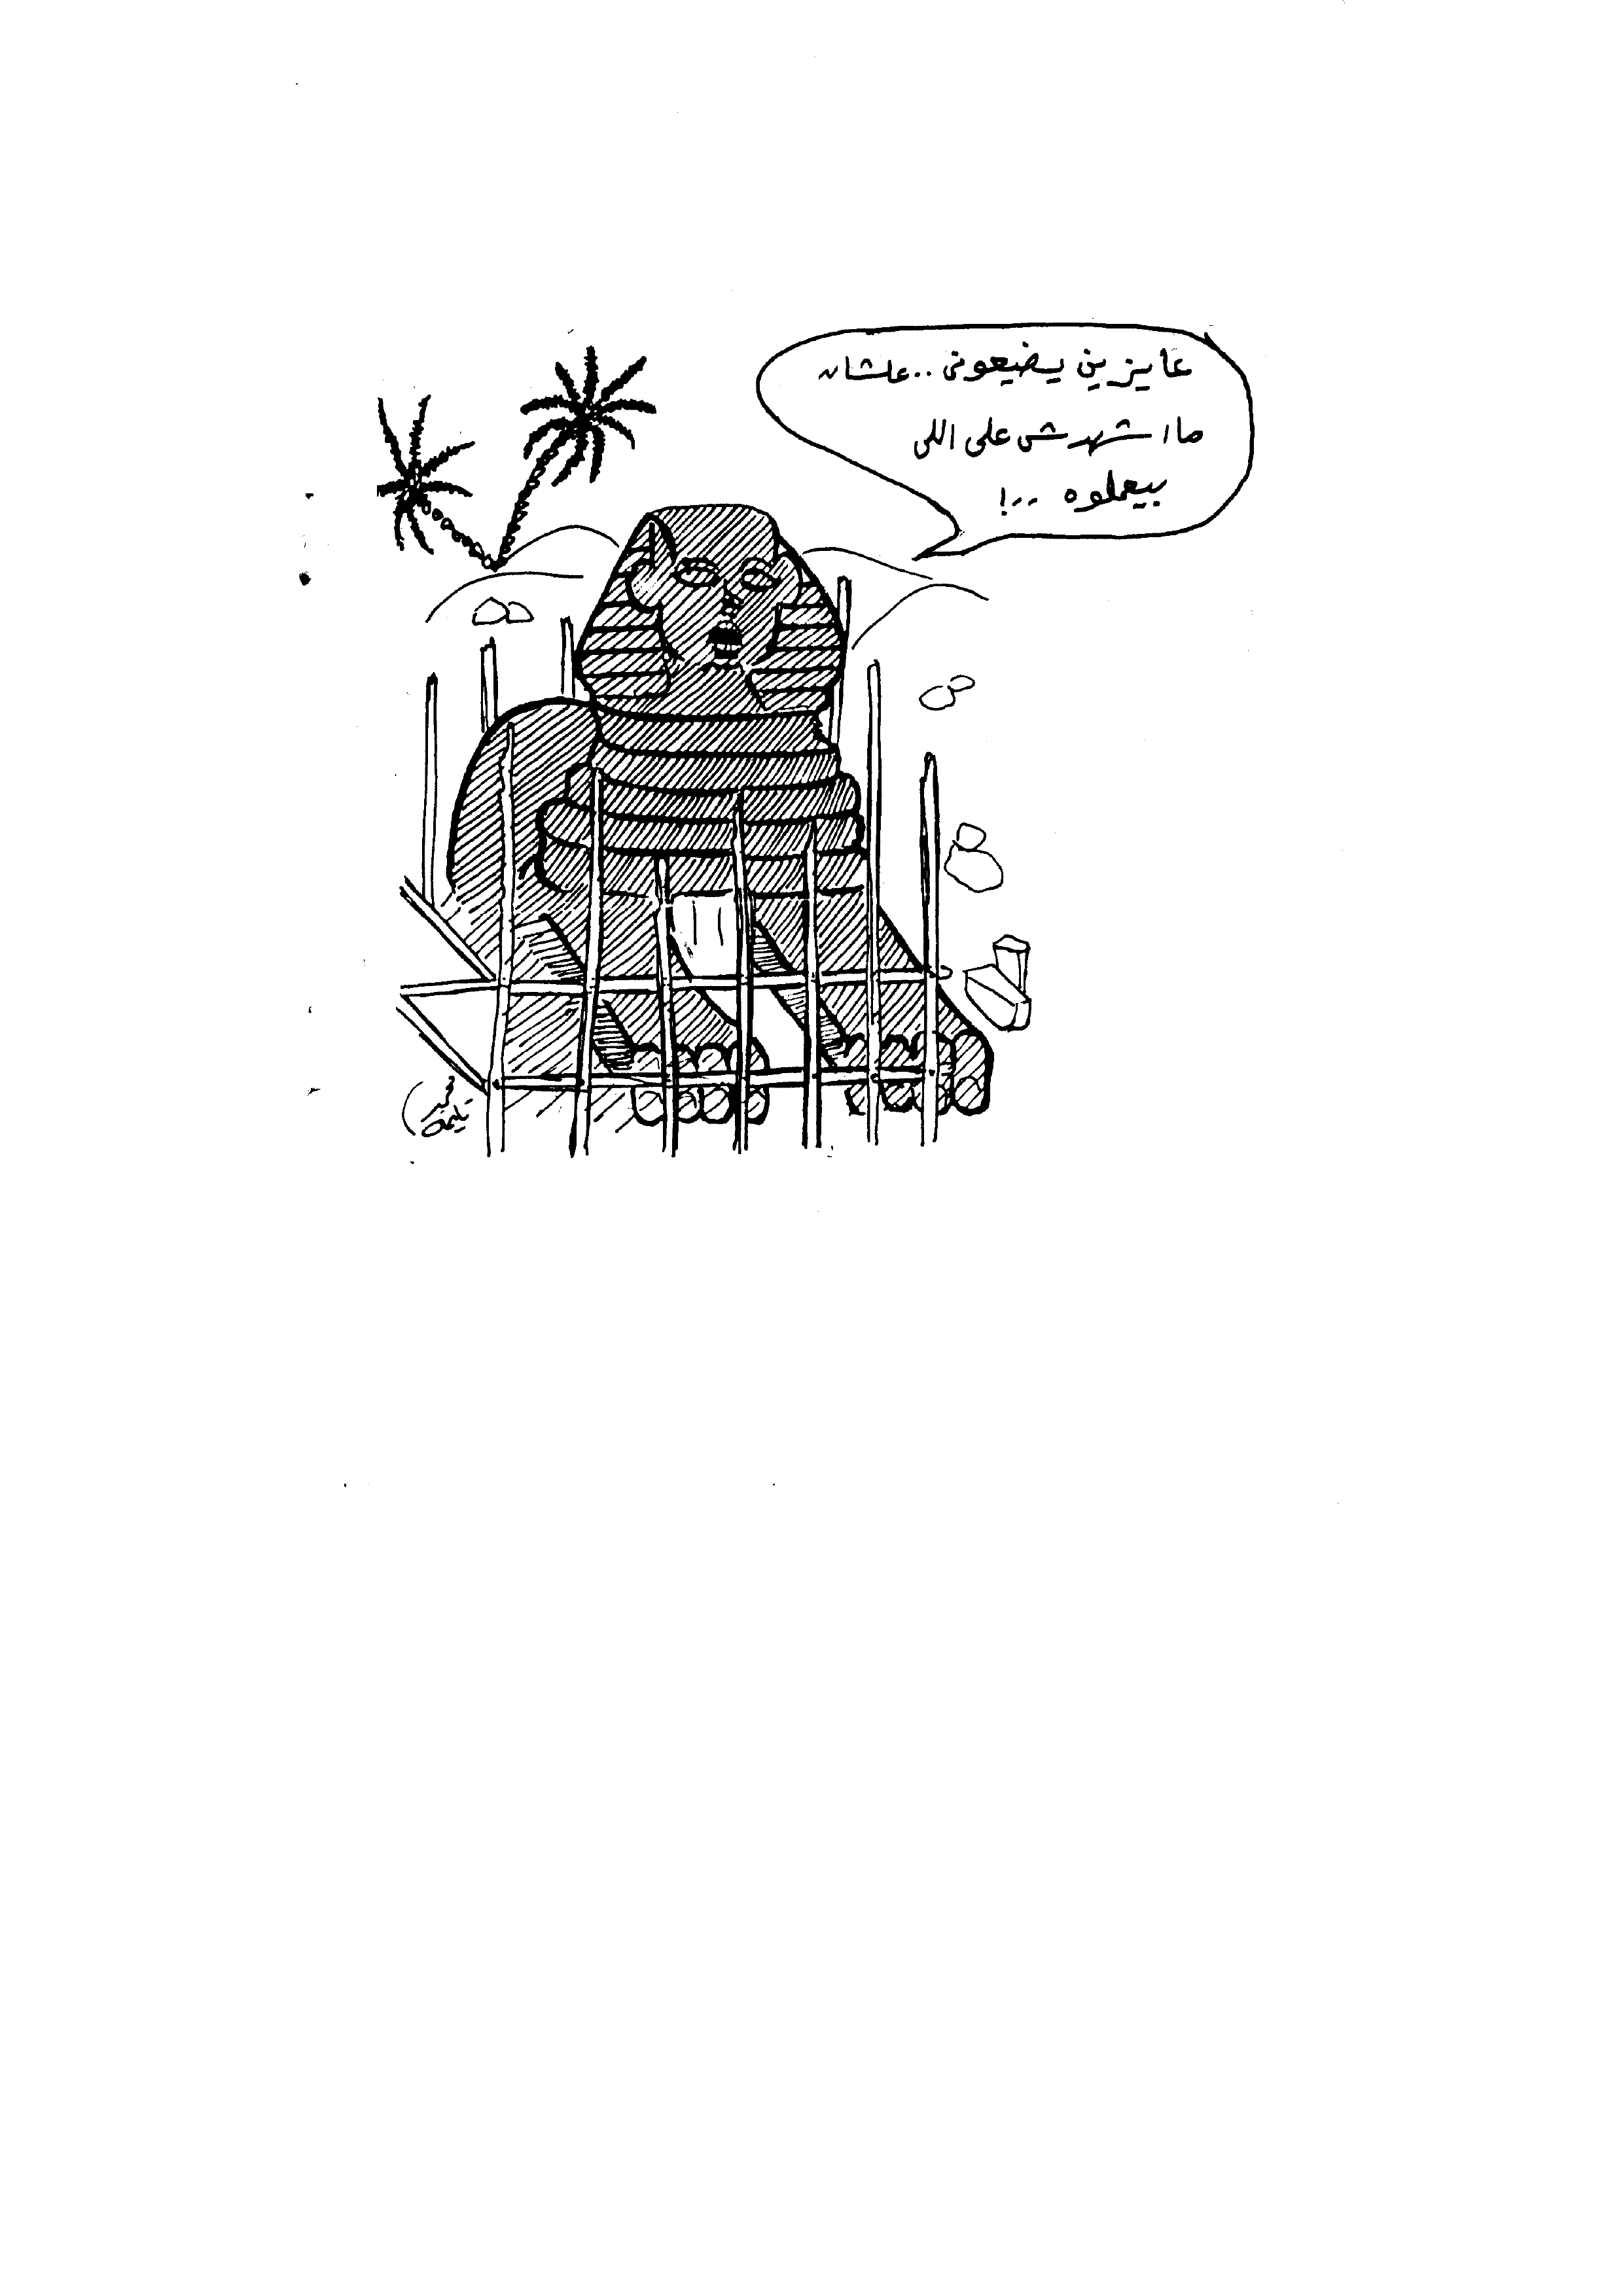 عايزين يضيعونى .. علشان
ما اشهدش على اللى
بيعملوه ..!